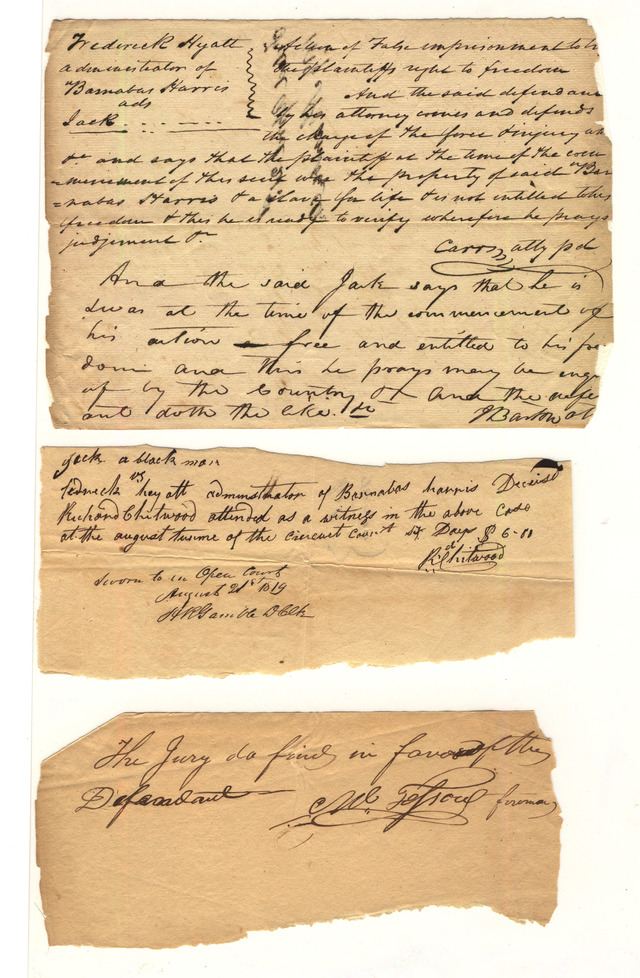 Frederick Hyatt
administrator of
Barnabas Harris
ads
Jack
of False imprisonment to
the plaintiffs right to freedom
And the said defend
by his attorney comes and defends
the charge of the force & injury
&c and says that the plaintiff at the time of the com
=mencement of this suit was the property of said Bar
=nabas Harris & a slave for life & is not intitled to his
freedom & this he is ready to verify wherefore he prays
judgement &c
Carr atty pd
And the said Jack says that he is
& was at the time of the commencement of
his action free and entitled to his fre
dom and this he prays may be enqu
of by the Country &c And the defe
ant doth the like &c
J Barton at
Jack a black man
vs
fedreick heyatt adminstrator of Barnabas harris Deceisd
Richard Chitwood attended as a witness in the above Case
at the august turme of the circuert Court six Days $ 6-00
Rd Chitwood
Sworn to in Open Court
August 21st 1819
H R Gamble D Clk
The Jury do find in favor of the
Defendant
foreman